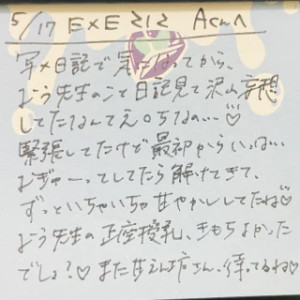 5/17 EXE ミミ Aくんへ
写メ日記で気になってから、
よう先生のこと日記見て沢山妄想
してたなんてえ〇ちな…♡
緊張してたけど最初からいっぱい
むぎゅーってしてたら解けてきて、
ずっといちゃいちゃ甘やかしてたね♡
よう先生の正座授乳、きもちよかった
でしょ？♡また甘えん坊さん、待ってるね♡